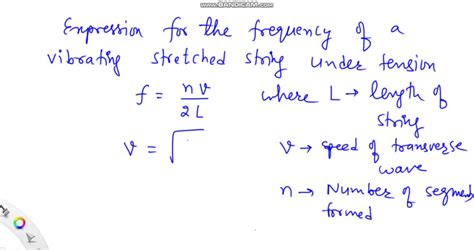 WWW.BANDICAM.COM
Expression for the frequency of a
vibrating stretched string under tension
f = nv / 2L
where L → length of
string
v = √
v → speed of transverse
wave
n → Number of segments
formed